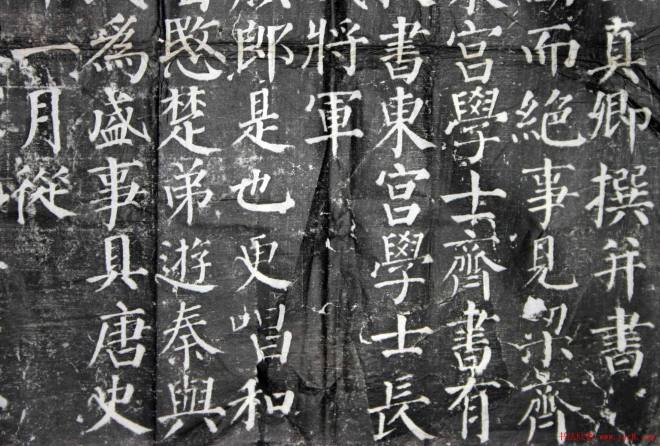 真卿撰并書
而絕事見梁齊
宮學士齊書有
書東宮學士長
將軍
郎是也更唱和
愍楚弟遊秦與
為盛事具唐史
一月從